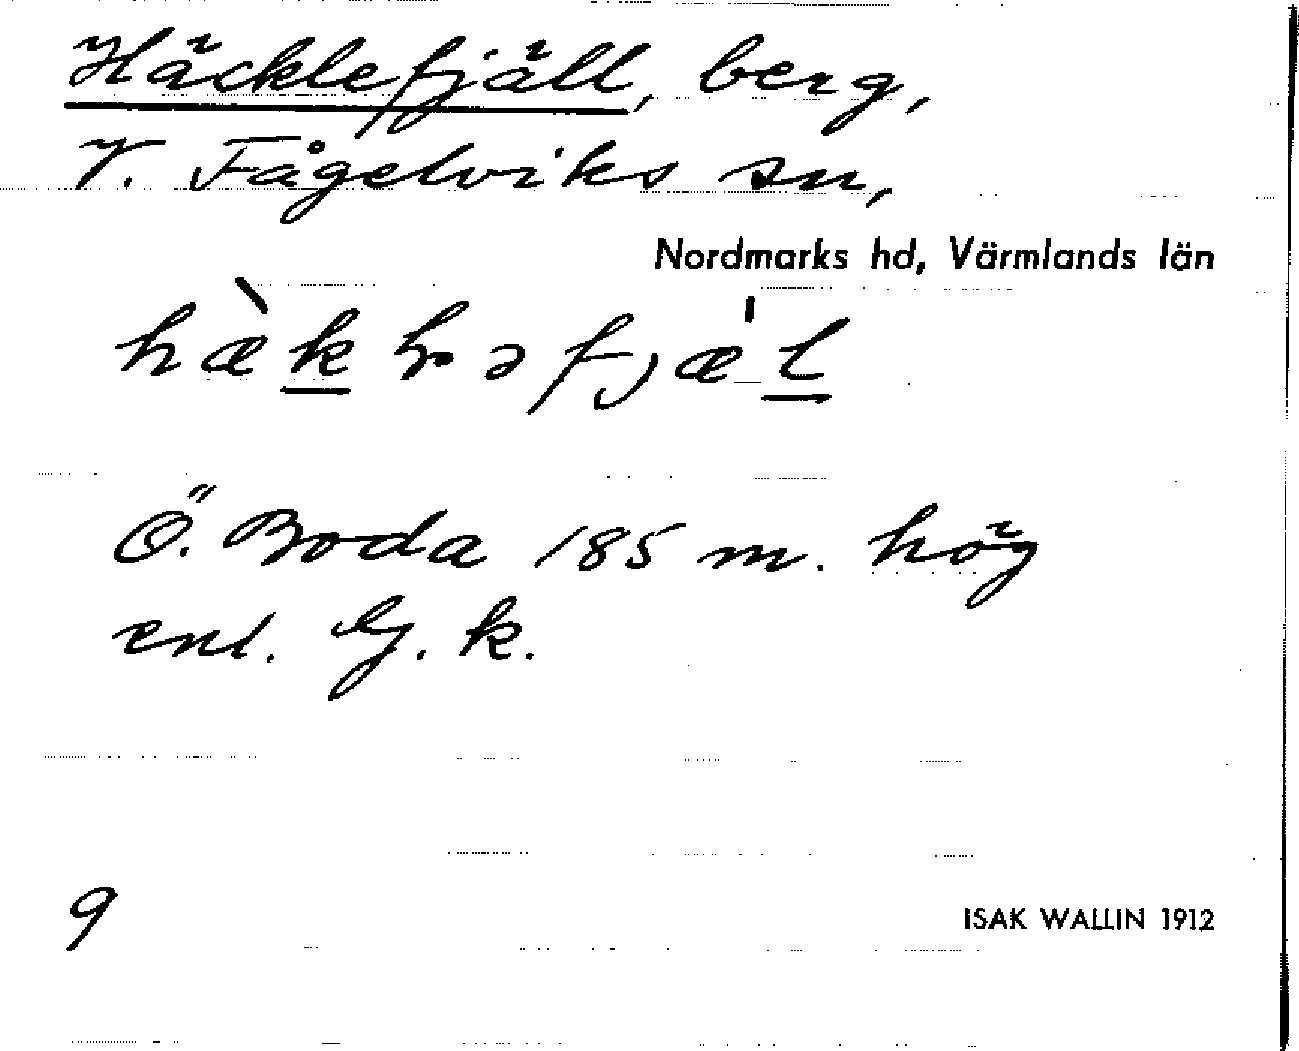 Häcklefjäll, berg,
V. Fågelviks sn,
Nordmarks hd, Värmlands län
Ö. Boda 185 m. hög
enl. G. k.
9
ISAK WALLIN 1912